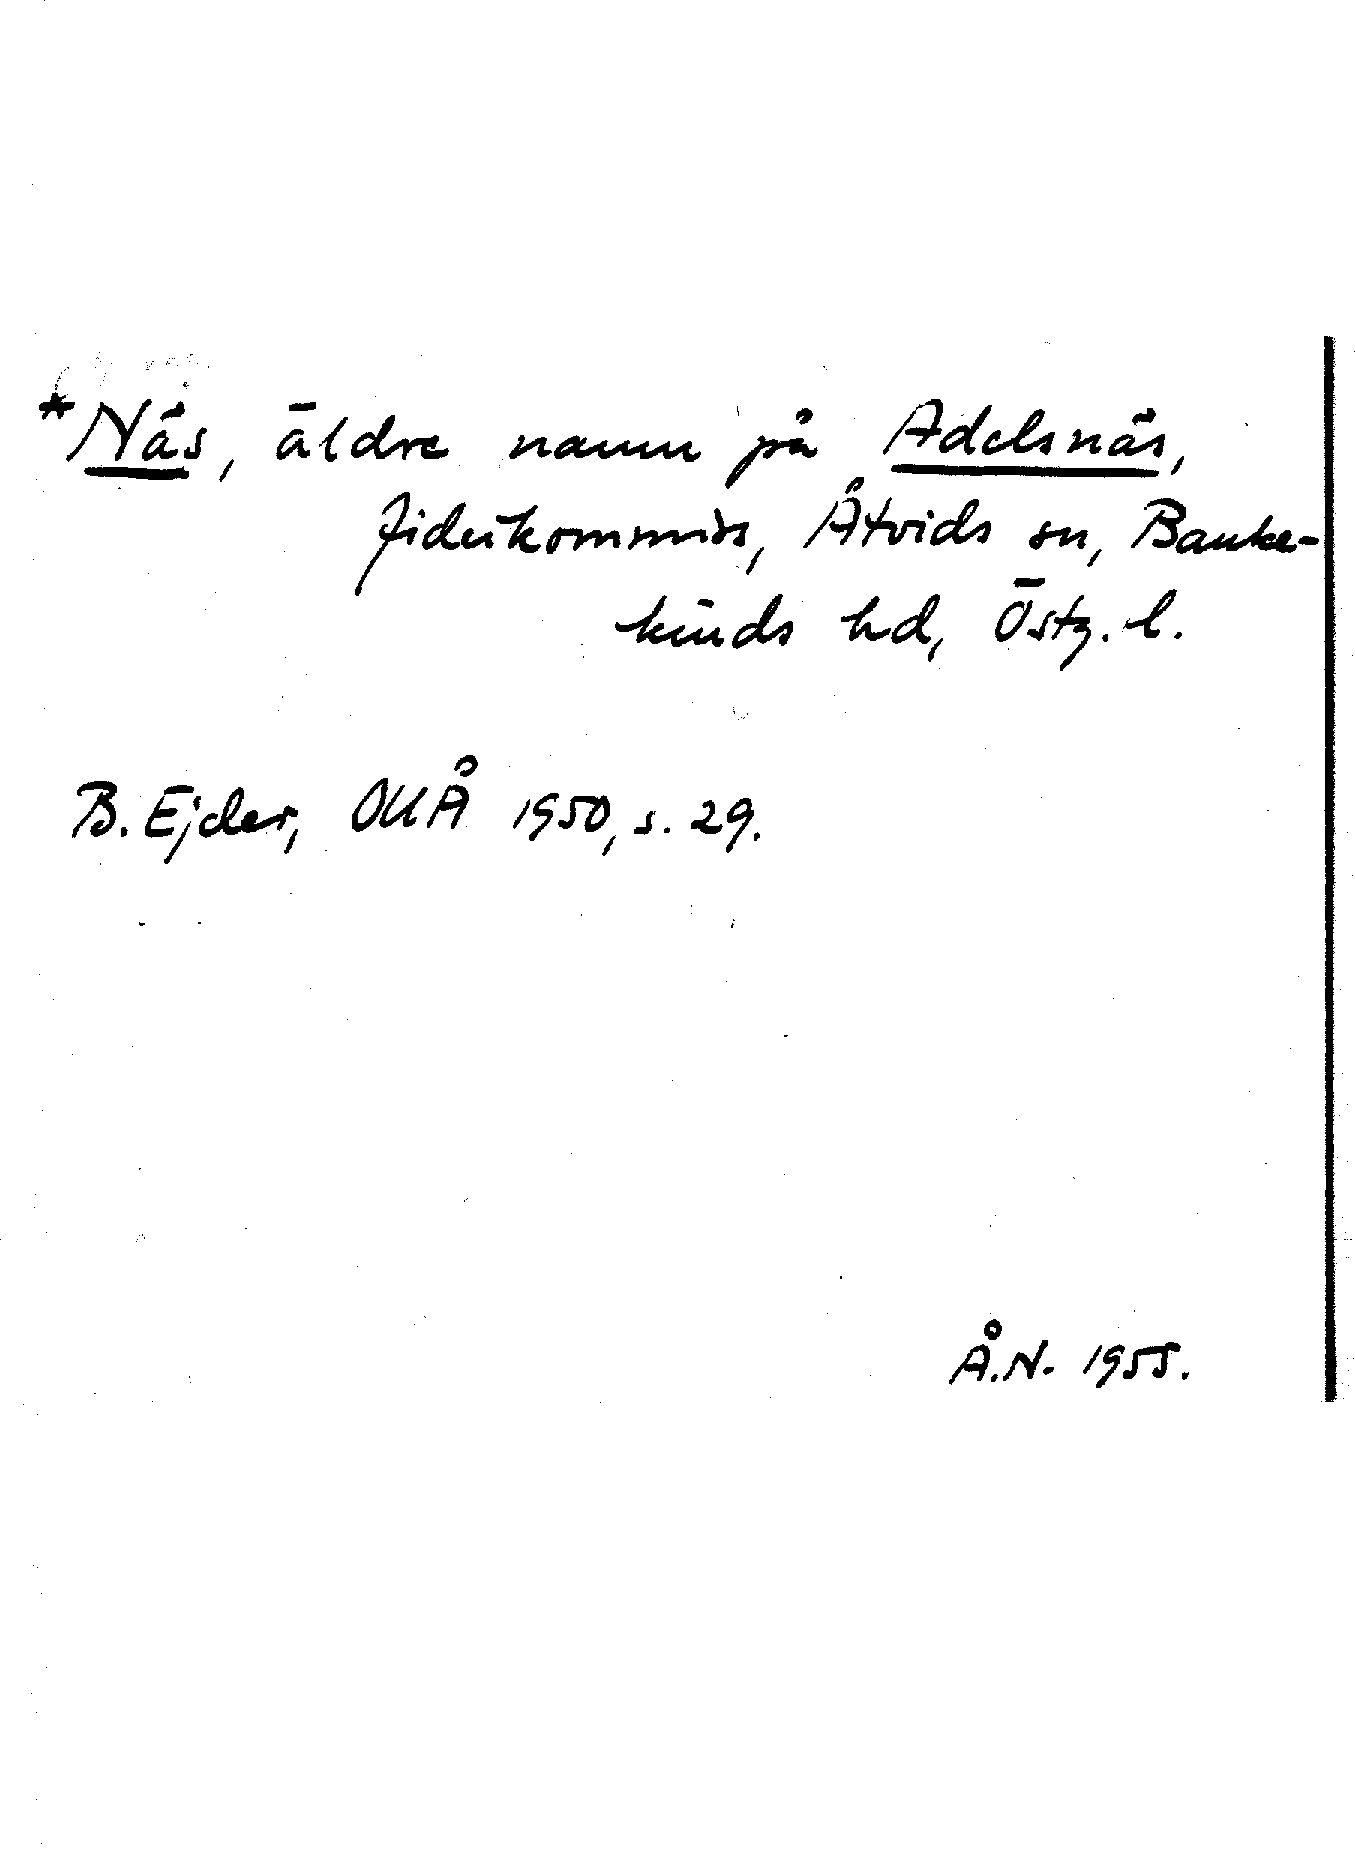 *Näs, äldre namn på Adelsnäs,
fideikommiss, Åtvids sn, Banke-
kinds hd, Östg. l.
B. Ejder, OUÅ 1950, s. 29.
Å.N. 1955.